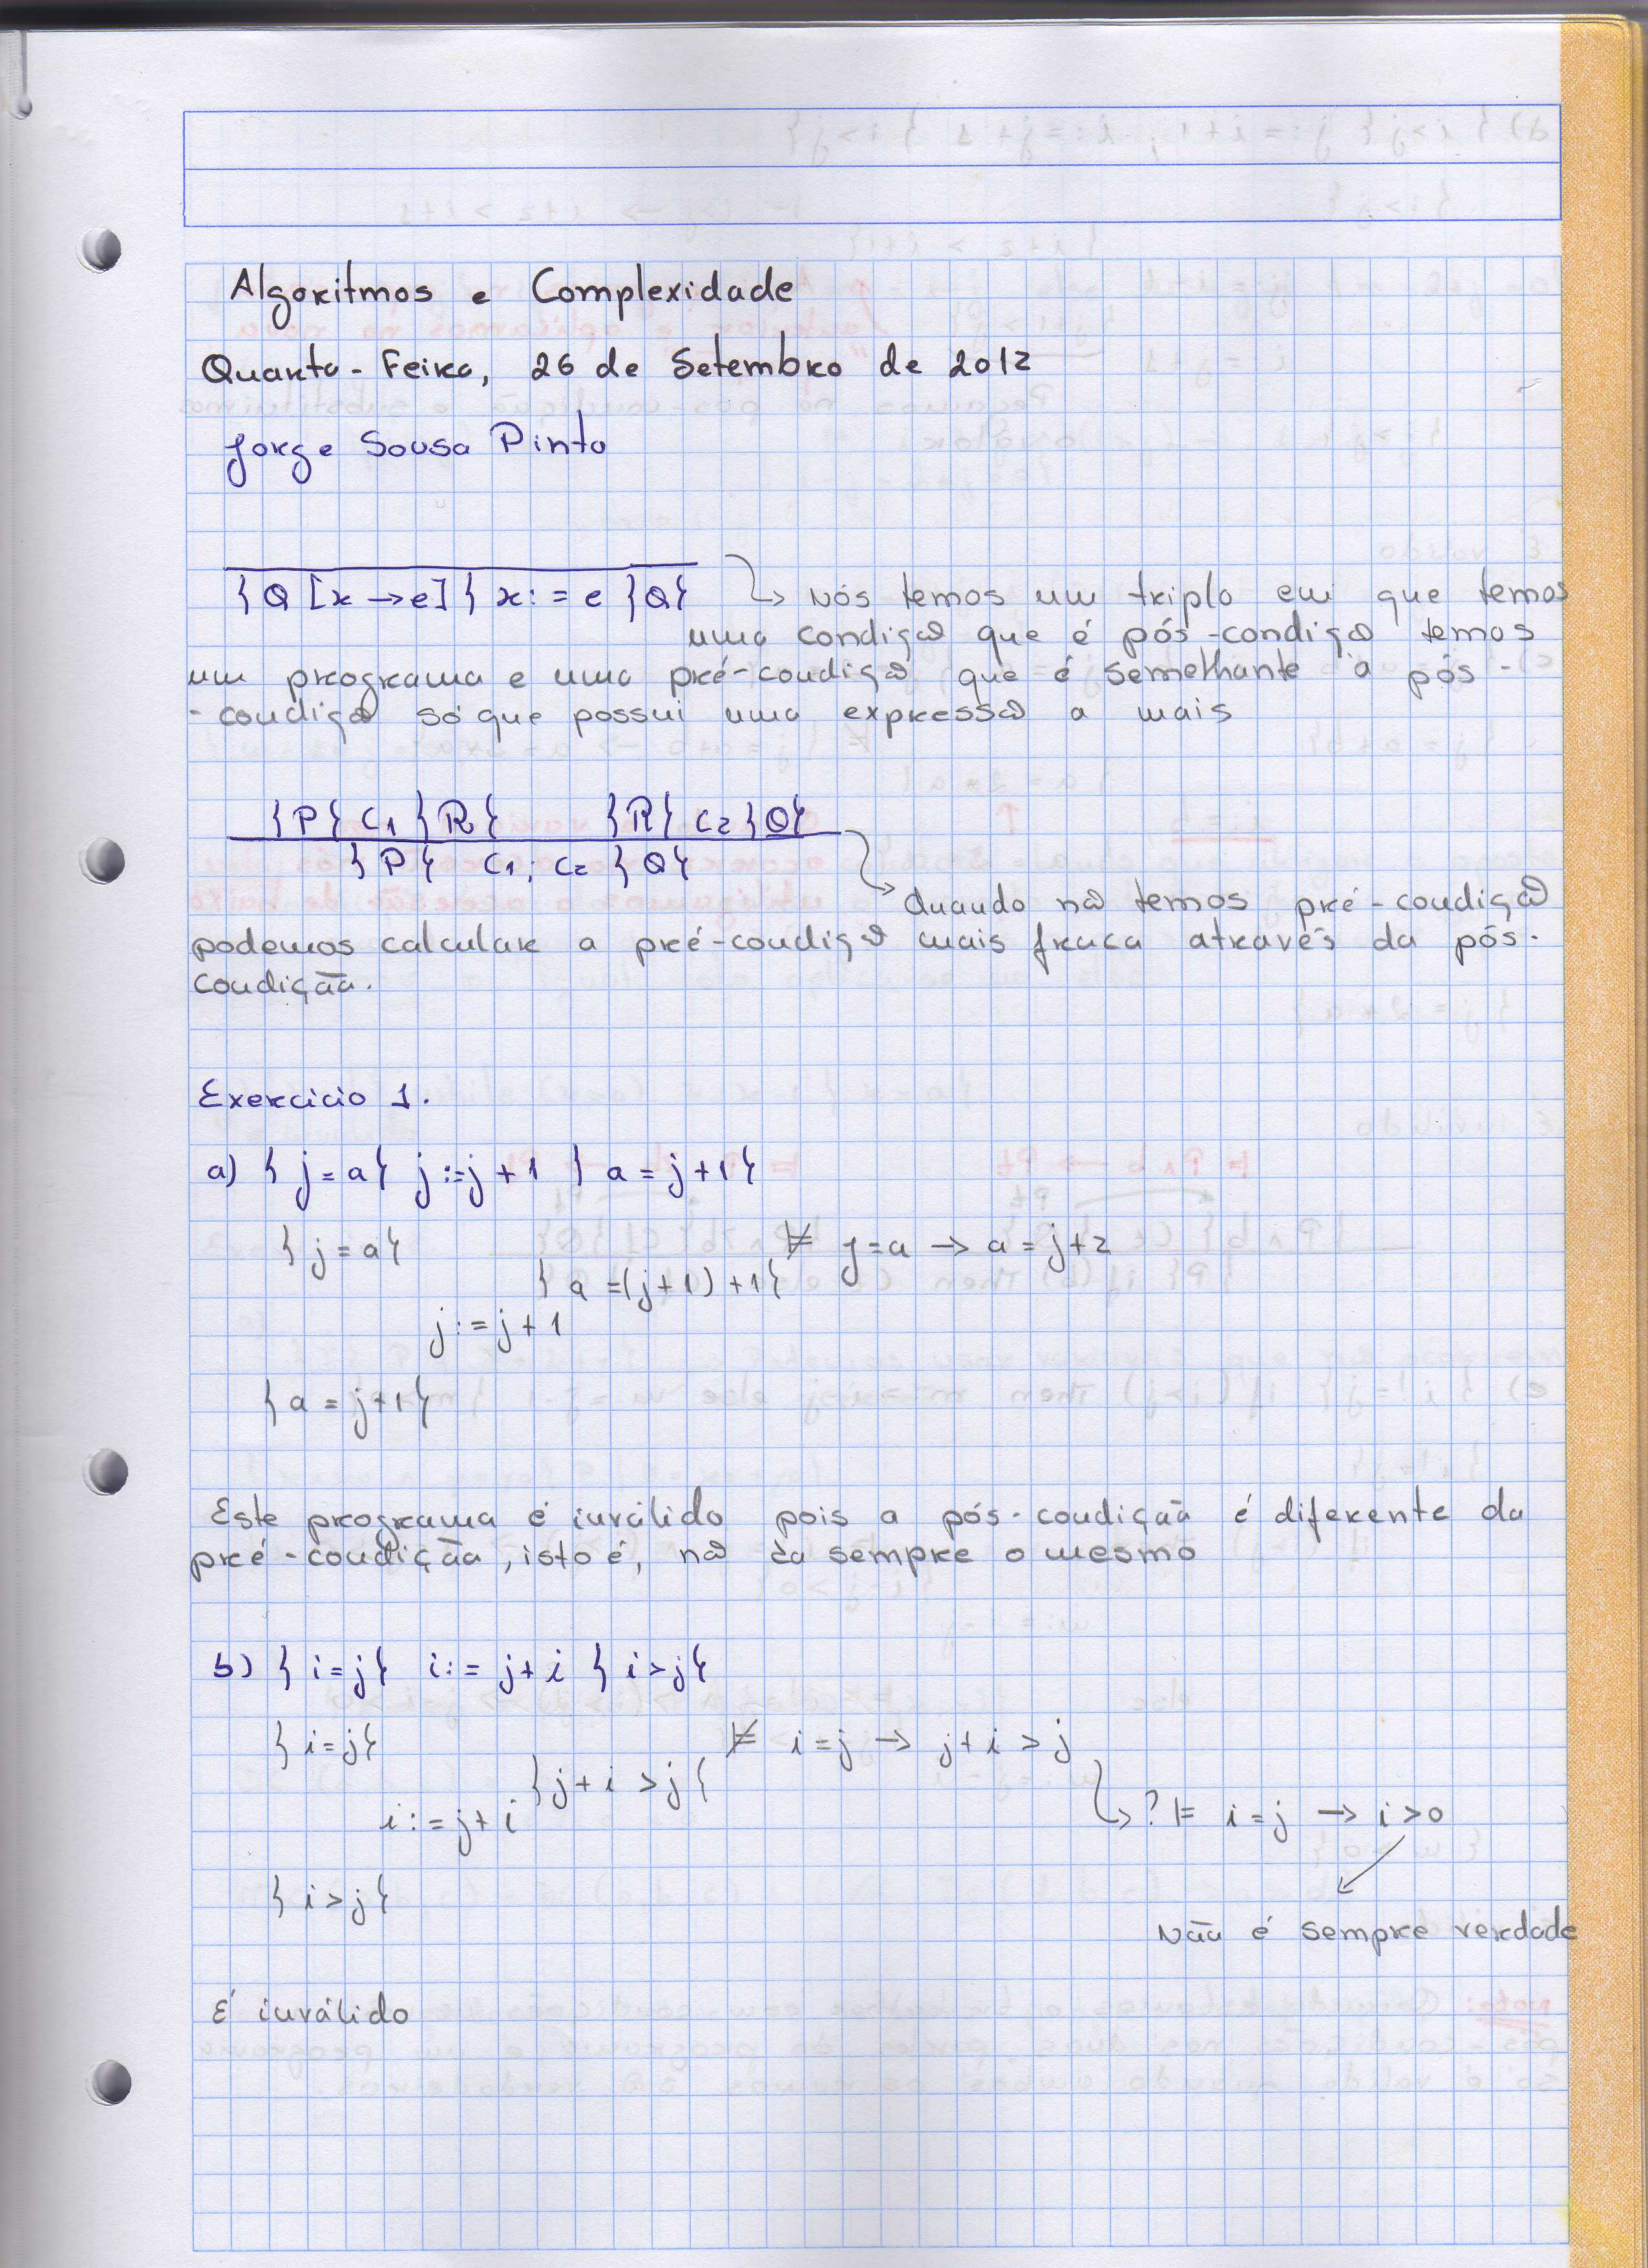 Algoritmos e Complexidade
Quarta-Feira, 26 de Setembro de 2012
Jorge Sousa Pinto
{Q [x→e]} x:=e {Q} ↳ Nós temos um triplo em que temos
uma condição que é pós-condição temos
um programa e uma pré-condição que é semelhante à pós-
-condição só que possui uma expressão a mais
{P} C1 {R} {R} C2 {Q}
{P} C1; C2 {Q}
↳ Quando não temos pré-condição
podemos calcular a pré-condição mais fraca através da pós-
condição.
Exercicio 1.
a) {j=a} j:=j+1 {a=j+1}
{j=a} ⊭ j=a → a=j+2
{a=(j+1)+1}
j:=j+1
{a=j+1}
Este programa é inválido pois a pós-condição é diferente da
pré-condição, isto é, não da sempre o mesmo
b) {i=j} i:=j+i {i>j}
{i=j} ⊭ i=j → j+i>j
{j+i>j}
i:=j+i ↳ ?⊨ i=j → i>0
{i>j}
Não é sempre verdade
É inválido